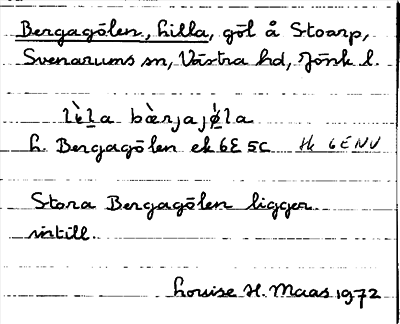 Bergagölen, Lilla, göl å Stoarp,
Svenarums sn, Västra hd, Jönk l.
lìl̠a bæ̀rjajǿ̠la
h. Bergagölen ek 6E 5c Hk 6E NV
Stora Bergagölen ligger
intill.
Louise H. Maas 1972